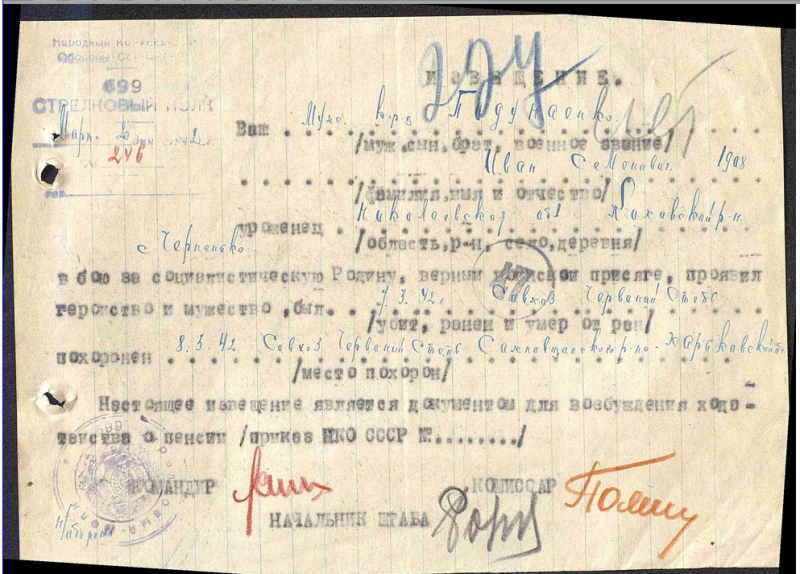 Народный
699
СТРЕЛКОВЫЙ ПОЛК
246
224
ИЗВЕЩЕНИЕ.
Ваш муж. кр-ц
/муж, сын, брат, военное звание/
Иван Семенович 1908
/фамилия, имя и отчество/
уроженец Николаевской обл Каховской р-н
/область, р-н, село, деревня/
с
в бою за социалистическую Родину, верный воинской присяге, проявил
геройство и мужество, был 7.3.42г Совхоз Червоний Степь
/убит, ранен и умер от ран/
похоронен 8.3.42 Совхоз Червоний Степь Харьковской
/место похорон/
Настоящее извещение является документом для возбуждения хода-
тайства о пенсии /приказ НКО СССР №......../
КОМАНДИР
КОМИССАР
НАЧАЛЬНИК ШТАБА